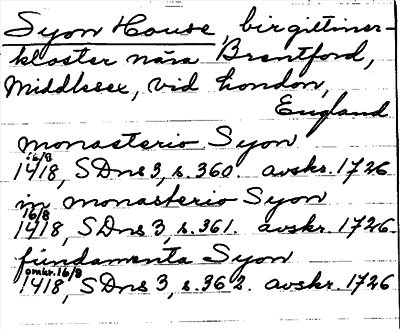 Syon House, birgittiner-
kloster nära Brentford,
Middlesex, vid London,
England
monasterio Syon
16/8
1418, SDns 3, s. 360. avskr. 1726
in monasterio Syon
16/8
1418, SDns 3, s. 361. avskr. 1726.
fundamenta Syon
omkr. 16/8
1418, SDns 3, s. 362. avskr. 1726